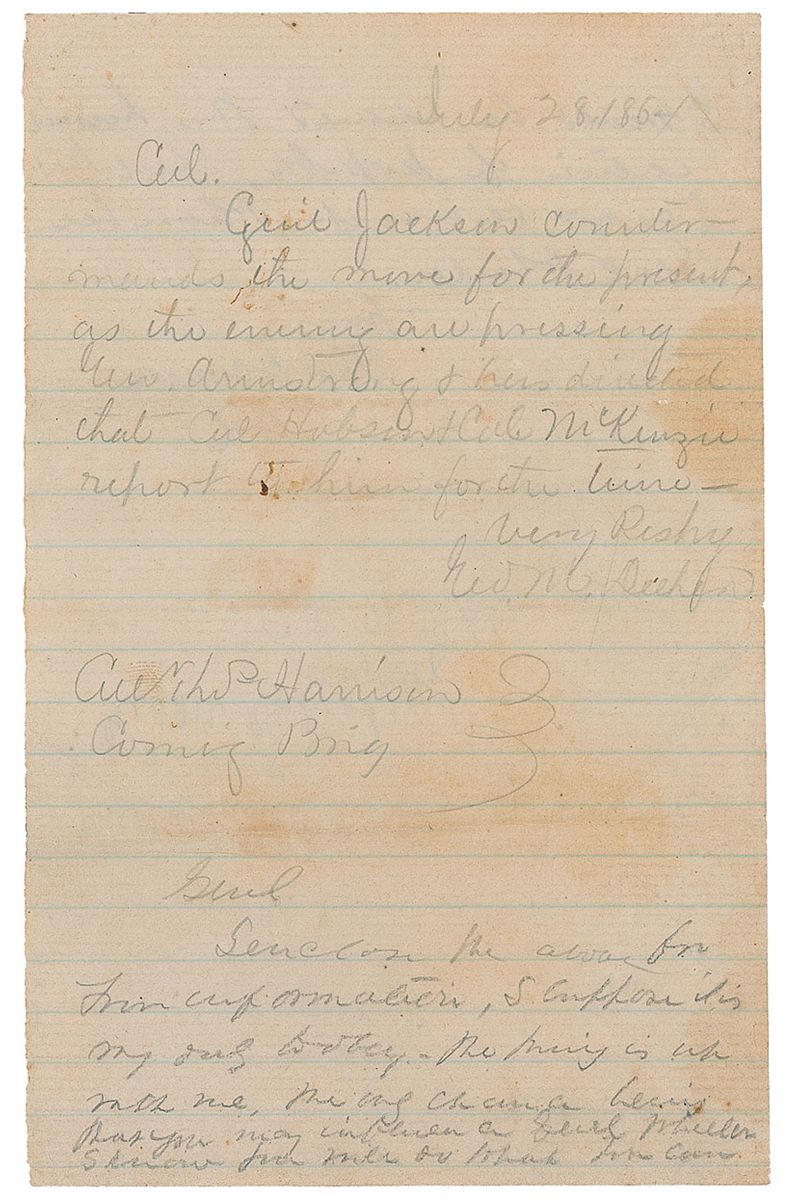 July 28, 1864
Col.
Genl Jackson counter-
mands the move for the present,
as the enemy are pressing
Gen. Armstrong & has directed
that Col Hobson & Col McKenzie
report to him for the time —
Very Respy
Geo. M.
Col Thos Harrison
Comig Brig
Genl
I enclose the above for
your information, I suppose it is
my duty to obey - The thing is up
with me, the only chance being
that you may influence Genl Wheeler
I know you will do what you can.